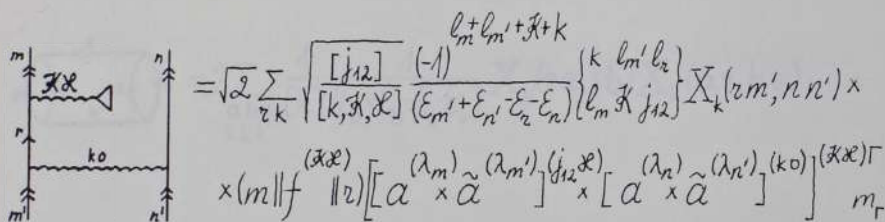 m n
𝒦ℋ
r
k0
m' n'
= √2 ∑_{rk} √([j₁₂]/[k,𝒦,ℋ]) (-1)^{l_m+l_{m'}+𝒦+k}/(ε_{m'}+ε_{n'}-ε_r-ε_n) {k l_{m'} l_r / l_m 𝒦 j₁₂} X_k(rm',nn') ×
×(m||f^{(𝒦ℋ)}||r)[[a^{(λ_m)} × ã^{(λ_{m'})}]^{(j₁₂ℋ)} × [a^{(λ_n)} × ã^{(λ_{n'})}]^{(k0)}]^{(𝒦ℋ)Γ}_{m_Γ}